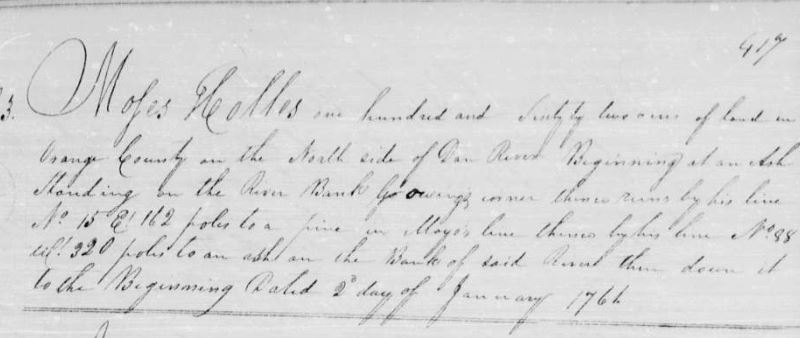 417
3. Moses Holles one hundred and Sixty two acres of land in
Orange County on the North side of Dan River Beginning at an Ash
Standing on the River Bank Gowing's corner thence runs by his line
No. 15 Et. 162 poles to a pine in Mayo's line thence by his line No. 88
Wt. 320 poles to an ash on the Bank of said River then down it
to the Beginning Dated 2d day of January 1761